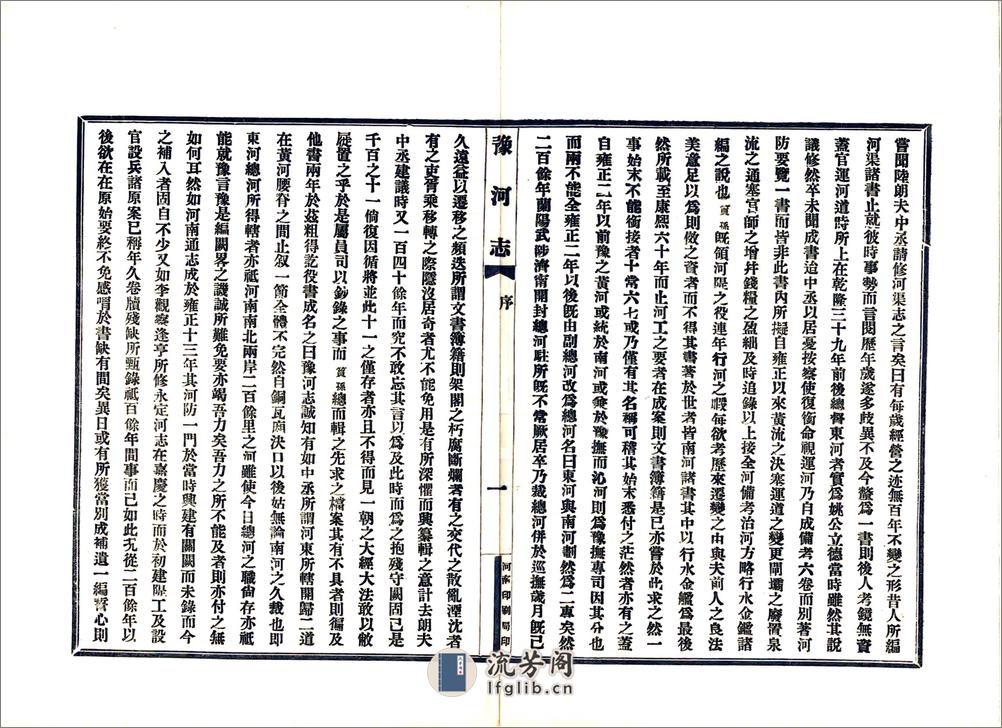 嘗聞陸朗夫中丞請修河渠諸書之言矣曰有每歲經營之迹無百年不變之形昔人所編
河渠諸書止就彼時事勢而言閱歷年歲遂多歧異不及今釐爲一書則後人考鏡無資
蓋官運河道時所上在乾隆三十九年前後總督東河者實爲姚公立德當時雖然其說
議修然卒未聞成書迨中丞以居憂按察使復銜命視運河乃自成備考六卷而別著河
防要覽一書而皆非此書內所擬自雍正以來黃流之決塞運道之變更閘壩之廢置泉
流之通塞官師之增幷錢糧之盈絀及時追錄以上接全河備考治河方略行水金鑑諸
編之說也簣孫旣領河隄之役連年行河之暇每欲考歷來遷變之由與夫前人之良法
美意足以爲則倣之資者而不得其書著於世者皆南河諸書其中以行水金鑑爲最後
然所載至康熙六十年而止河工之要者在成案則文書簿籍是已亦嘗於此求之然一
事始末不能銜接者十常六七或乃僅有其名稱可稽其始末悉付之茫然者亦有之蓋
自雍正二年以前豫之黃河或統於南河或兼於豫撫而沁河則爲豫撫專司因其分也
而兩不能全雍正二年以後旣由副總河改爲總河名曰東河與南河劃然爲二東矣然
二百餘年蘭陽武陟濟甯開封總河駐所旣不常厥居卒乃裁總河併於巡撫歲月旣已
豫河志
序
一
河南印刷局印
久遠益以遷移之頻迭所謂文書簿籍則架閣之朽腐斷爛者有之交代之散亂湮沈者
有之吏胥乘移轉之際隱沒居奇者尤不能免用是有所深懼而興纂輯之意計去朗夫
中丞建議時又一百四十餘年而究不敢忘其言以爲及此時而爲之抱殘守闕固已是
千百之十一倘復因循將並此十一之僅存者亦且不得而見一朝之大經大法敢以敝
屣置之乎於是屬員司以鈔錄之事而簣孫總而輯之先求之檔案其有不具者則徧及
他書兩年於茲粗得訖役書成名之曰豫河志誠知有如中丞所謂河東所轄開歸二道
在黃河腰脊之間止叙一節全體不完然自銅瓦廂決口以後姑無論南河之久裁也即
東河總河所得轄者亦祇河南南北兩岸二百餘里之河雖使今日總河之職尙存亦祇
能就豫言豫是編闕畧之譏誠所難免要亦竭吾力矣吾力之所不能及者則亦付之無
如何耳然如河南通志成於雍正十三年其河防一門於當時興建有關闕而未錄而今
之補入者固自不少又如李觀察逢亨所修永定河志在嘉慶之時而於初建隄工及設
官設兵諸原案已稱年久卷牘殘缺所甄錄祇百餘年間事而已如此況從二百餘年以
後欲在在原始要終不免感喟於書缺有間矣異日或有所獲當別成補遺一編誓心則
流芳阁
lfglib.cn